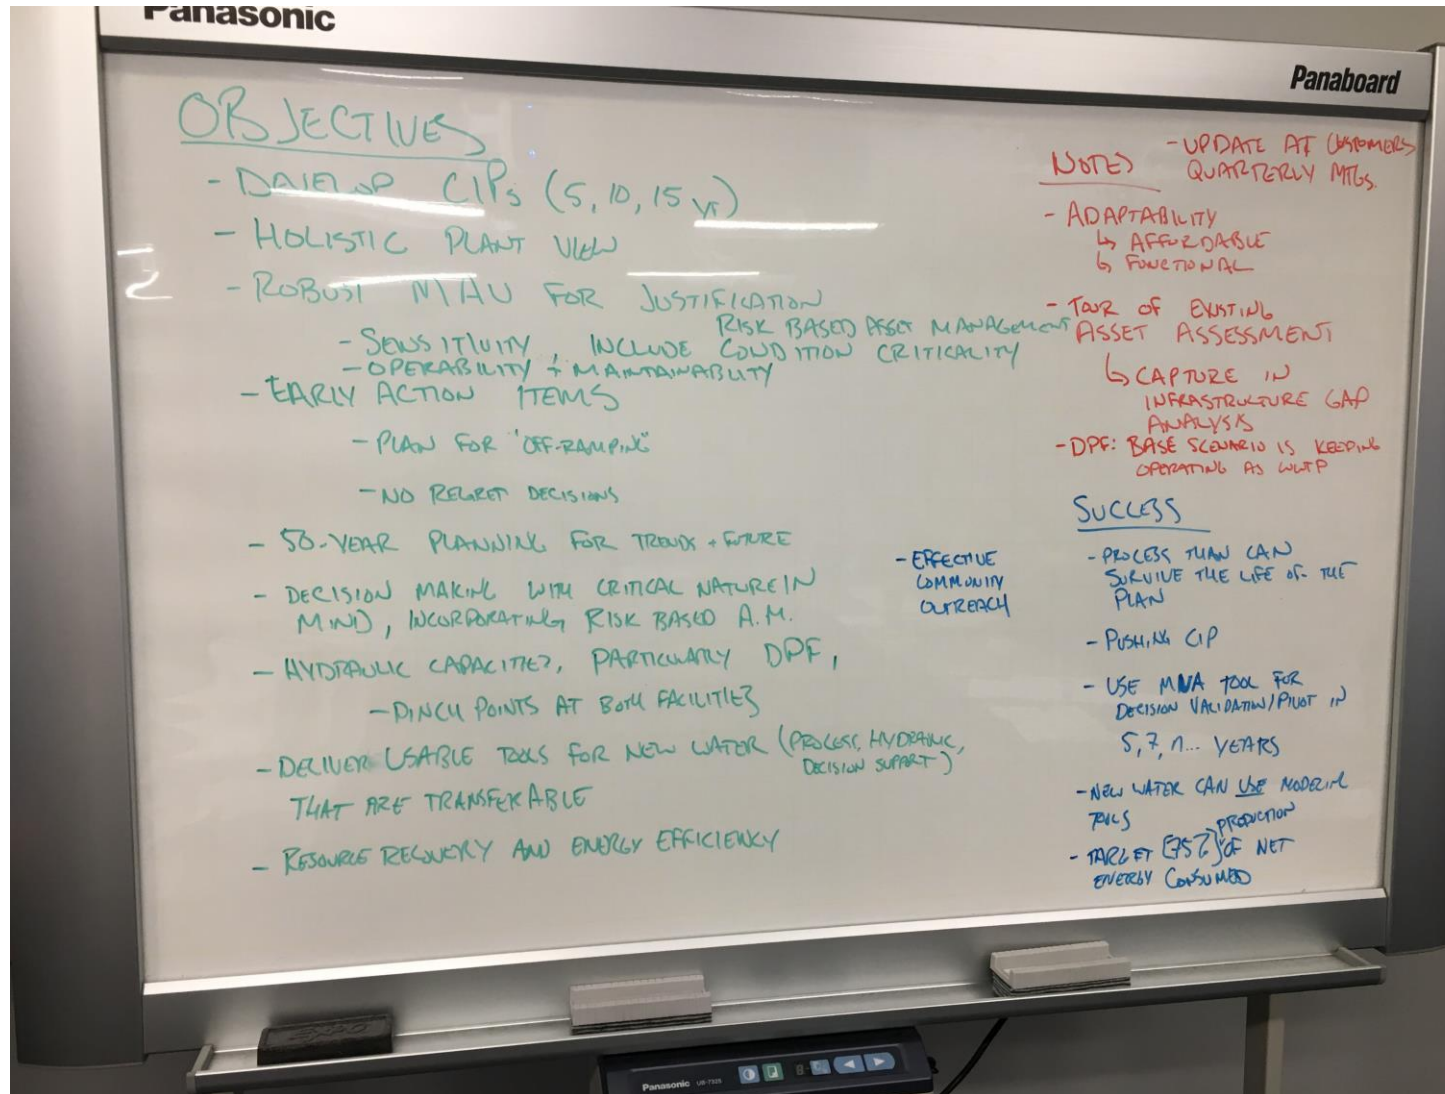 Panasonic
Panaboard
OBJECTIVES
- DEVELOP CIPs (5, 10, 15 yr)
- HOLISTIC PLANT VIEW
- ROBUST MAU FOR JUSTIFICATION
RISK BASED ASSET MANAGEMENT
- SENSITIVITY, INCLUDE CONDITION CRITICALITY
- OPERABILITY + MAINTAINABILITY
- EARLY ACTION ITEMS
- PLAN FOR "OFF-RAMPING"
- NO REGRET DECISIONS
- 50-YEAR PLANNING FOR TRENDS + FUTURE
- DECISION MAKING WITH CRITICAL NATURE IN
MIND, INCORPORATING RISK BASED A.M.
- HYDRAULIC CAPACITIES, PARTICULARLY DPF,
- PINCH POINTS AT BOTH FACILITIES
- DELIVER USABLE TOOLS FOR NEW WATER (PROCESS, HYDRAULIC,
DECISION SUPPORT)
THAT ARE TRANSFERABLE
- RESOURCE RECOVERY AND ENERGY EFFICIENCY
NOTES
- UPDATE AT CUSTOMERS
QUARTERLY MTGS.
- ADAPTABILITY
↳ AFFORDABLE
↳ FUNCTIONAL
- TOUR OF EXISTING
ASSET ASSESSMENT
↳ CAPTURE IN
INFRASTRUCTURE GAP
ANALYSIS
- DPF: BASE SCENARIO IS KEEPING
OPERATING AS WWTP
SUCCESS
- EFFECTIVE
COMMUNITY
OUTREACH
- PROCESS THAN CAN
SURVIVE THE LIFE OF THE
PLAN
- PUSHING CIP
- USE TOOL FOR
DECISION VALIDATION/PIVOT IN
5, 7, n... YEARS
- NEW WATER CAN USE MODELING
TOOLS
PRODUCTION
- TARGET [75%] OF NET
ENERGY CONSUMED
Panasonic UB-7325